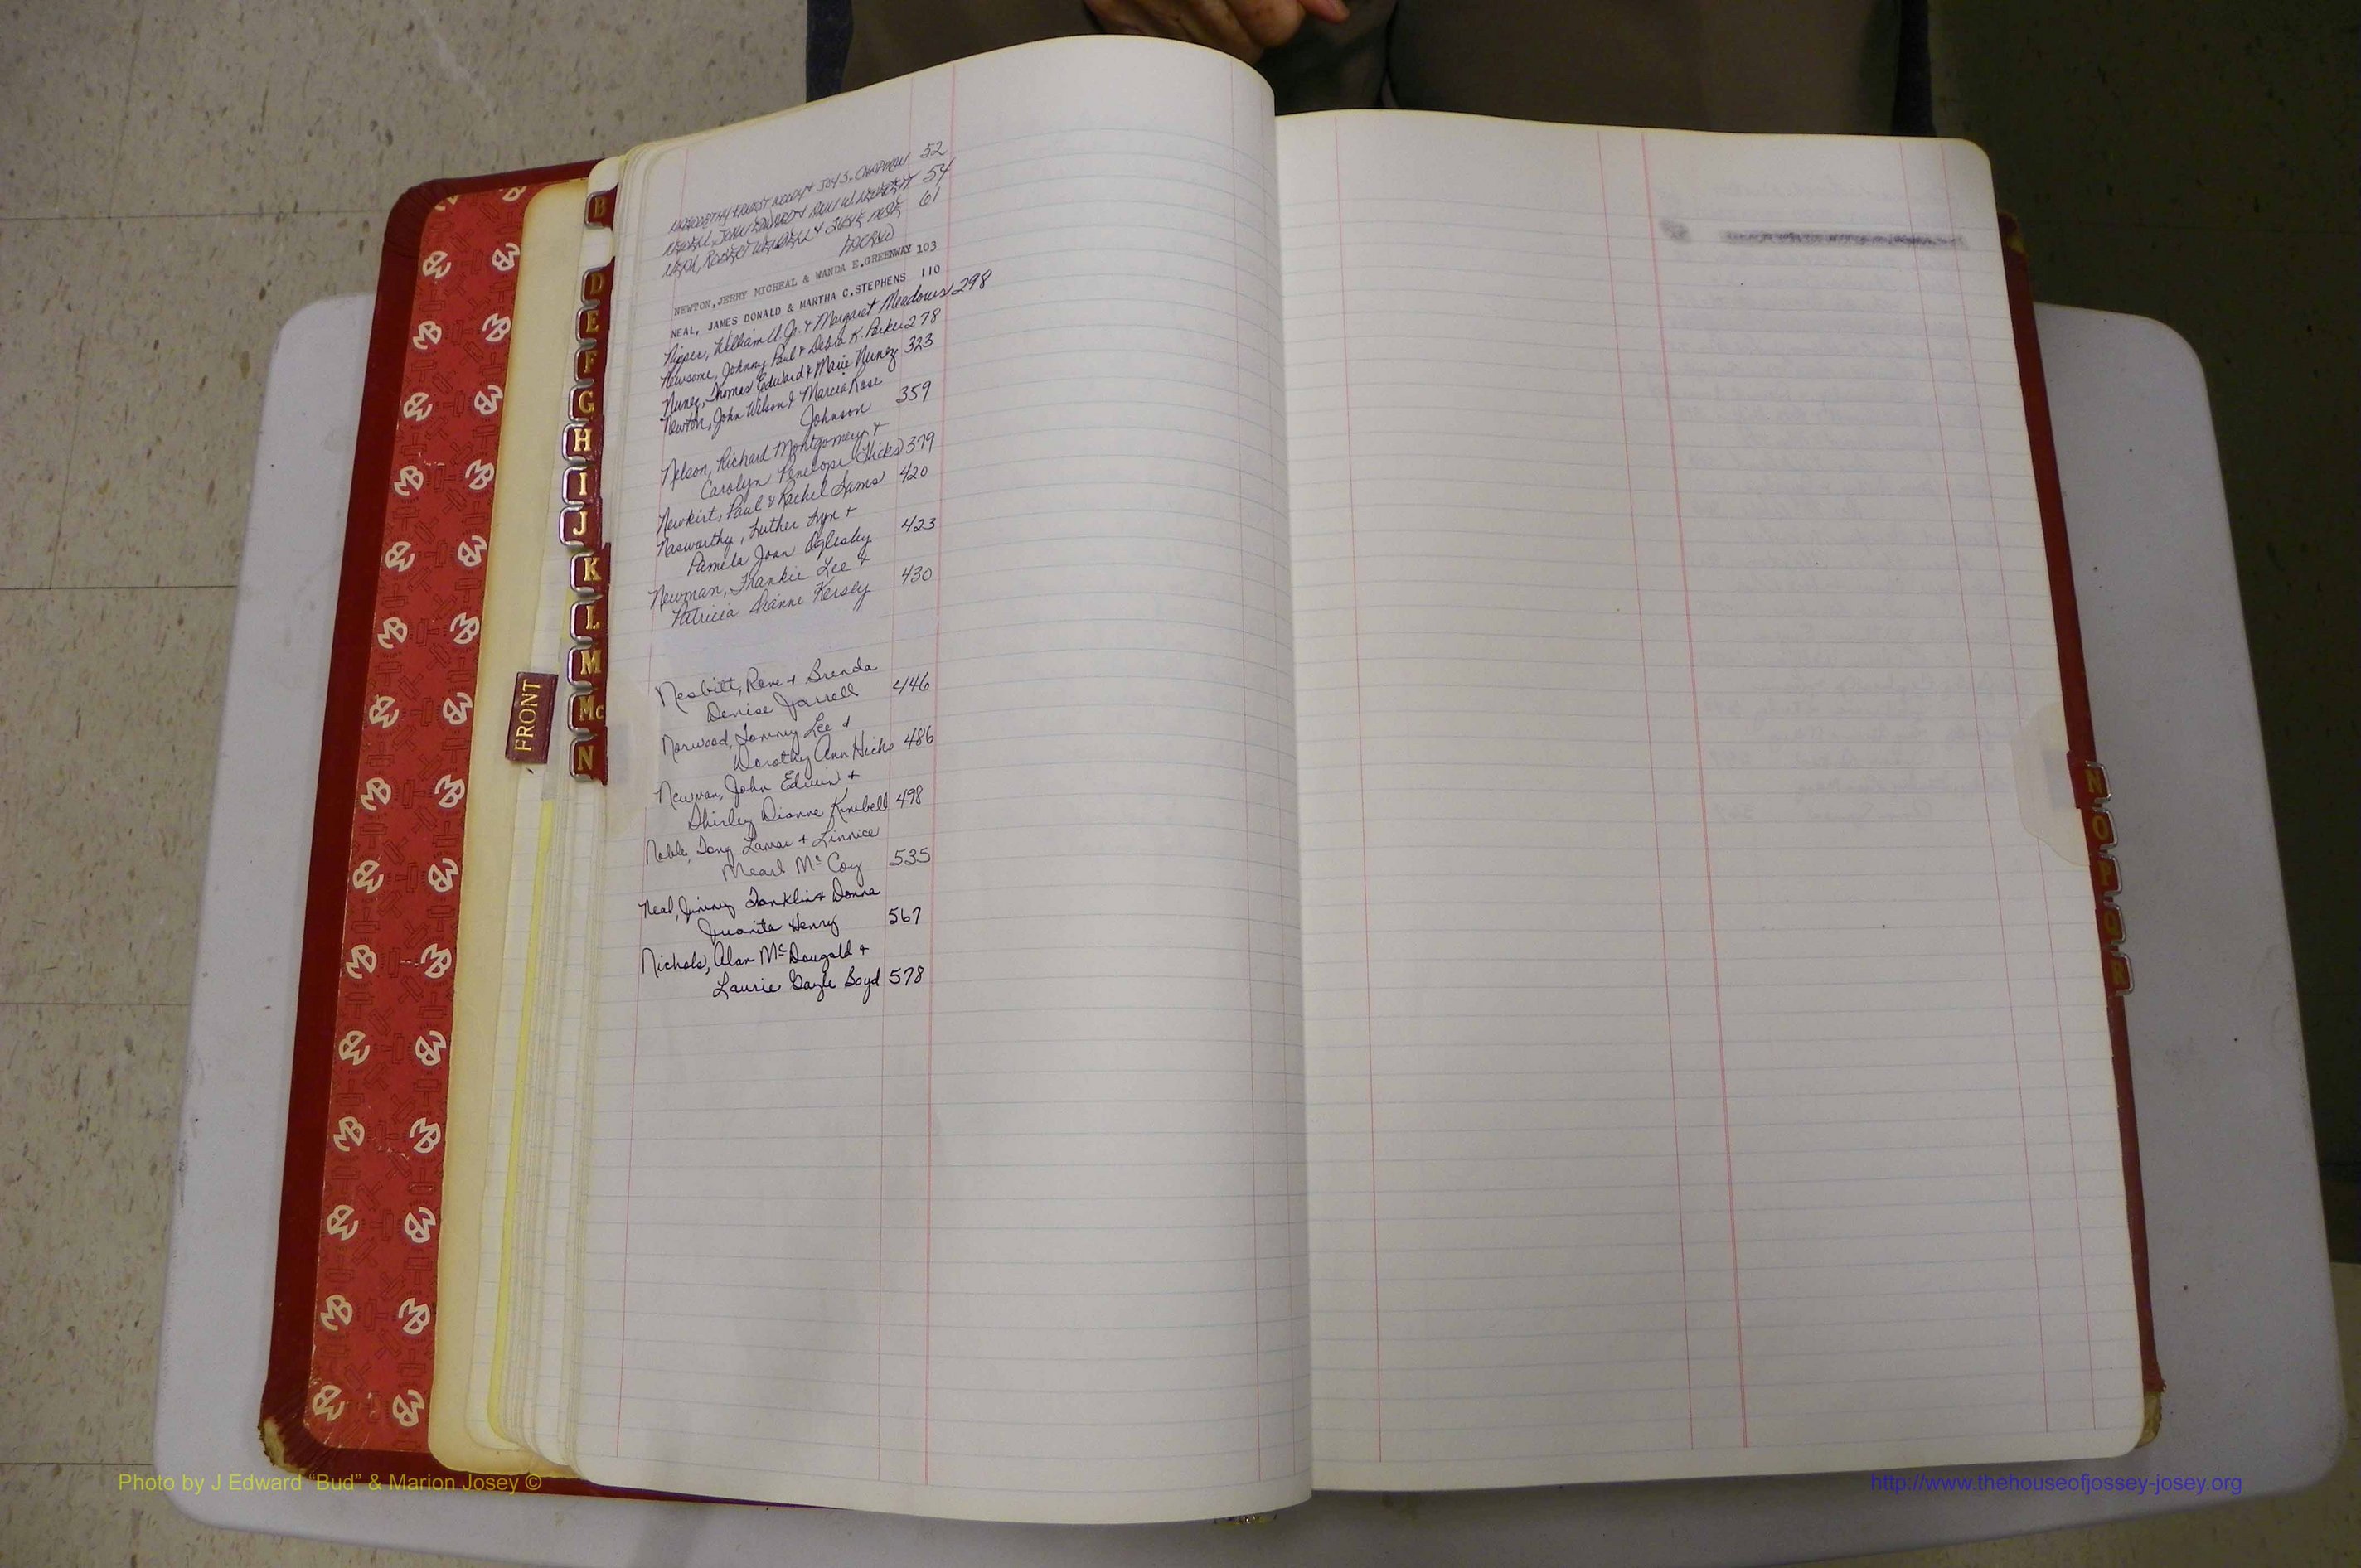 NASWORTHY, ERNEST WOODY & JOY S. CHAPMAN 52
NEWELL, JOHN EDWARD & ANN W. 54
NEAL, ROBERT WENDELL & SUSIE ROSE 61
NEWTON, JERRY MICHEAL & WANDA E. GREENWAY 103
NEAL, JAMES DONALD & MARTHA C. STEPHENS 110
Nipper, William U. Jr. & Margaret Meadows 298
Newsome, Johnny Paul & Debra K. Parker 278
Nunez, Thomas Edward & Marie Nunez 323
Newton, John Wilson & Marcia Rose
Johnson 359
Nelson, Richard Montgomery &
Carolyn Penelope Hicks 379
Newkirt, Paul & Rachel Sams 420
Nasworthy, Luther Lyn &
Pamela Joan Oglesby 423
Newman, Frankie Lee &
Patricia Dianne Kersey 430
Nesbitt, Rene & Brenda
Denise Jarrell 446
Norwood, Tommy Lee &
Dorothy Ann Hicks 486
Newman, John Edwin &
Shirley Dianne Kimbell 498
Noble, Tony Lamar & Linnice
Mearl McCoy 535
Neal, Jimmy Franklin & Donna
Juanita Henry 567
Nichols, Alan McDougald &
Laurie Gayle Boyd 578
FRONT
B
D
E
F
G
H
I
J
K
L
M
Mc
N
N
O
P
Q
R
Photo by J Edward “Bud” & Marion Josey ©
http://www.thehouseofjossey-josey.org